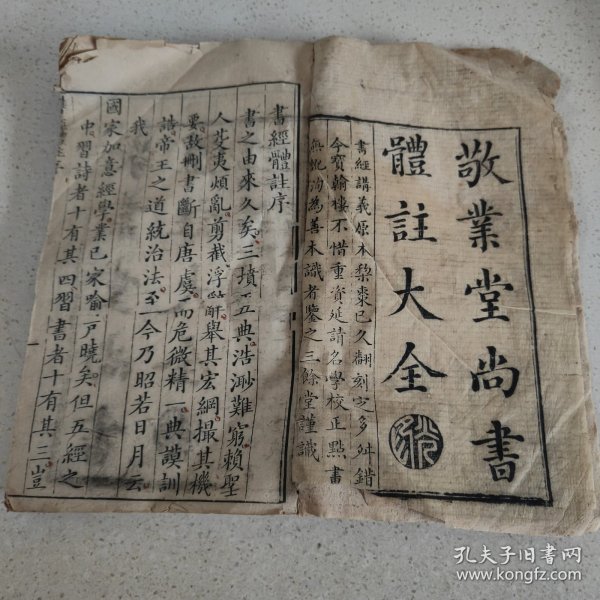 敬業堂尚書
體註大全
書經講義原本梨棗已久翻刻定多舛錯
今寶翰樓不惜重資延請名學校正點畫
無訛洵為善本識者鑒之三餘堂謹識
書經體註序
書之由來久矣三墳五典浩渺難窮賴聖
人芟夷煩亂剪截浮辭舉其宏綱撮其機
要敢刪書斷自唐虞而危微精一典謨訓
誥帝王之道統治法至今乃昭若日月云
我
國家加意經學業已家喻戶曉矣但五經之
中習詩者十有其四習書者十有其三豈
孔夫子旧书网
www.kongfz.com